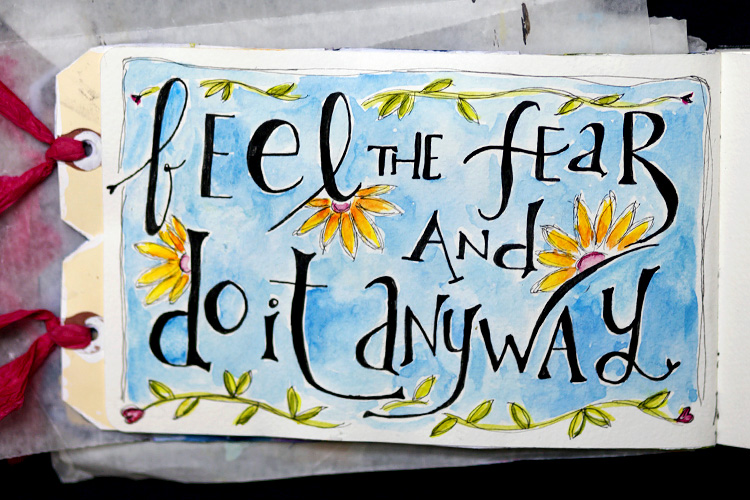 fEel THE fEaR
AND
do it aNyWAy